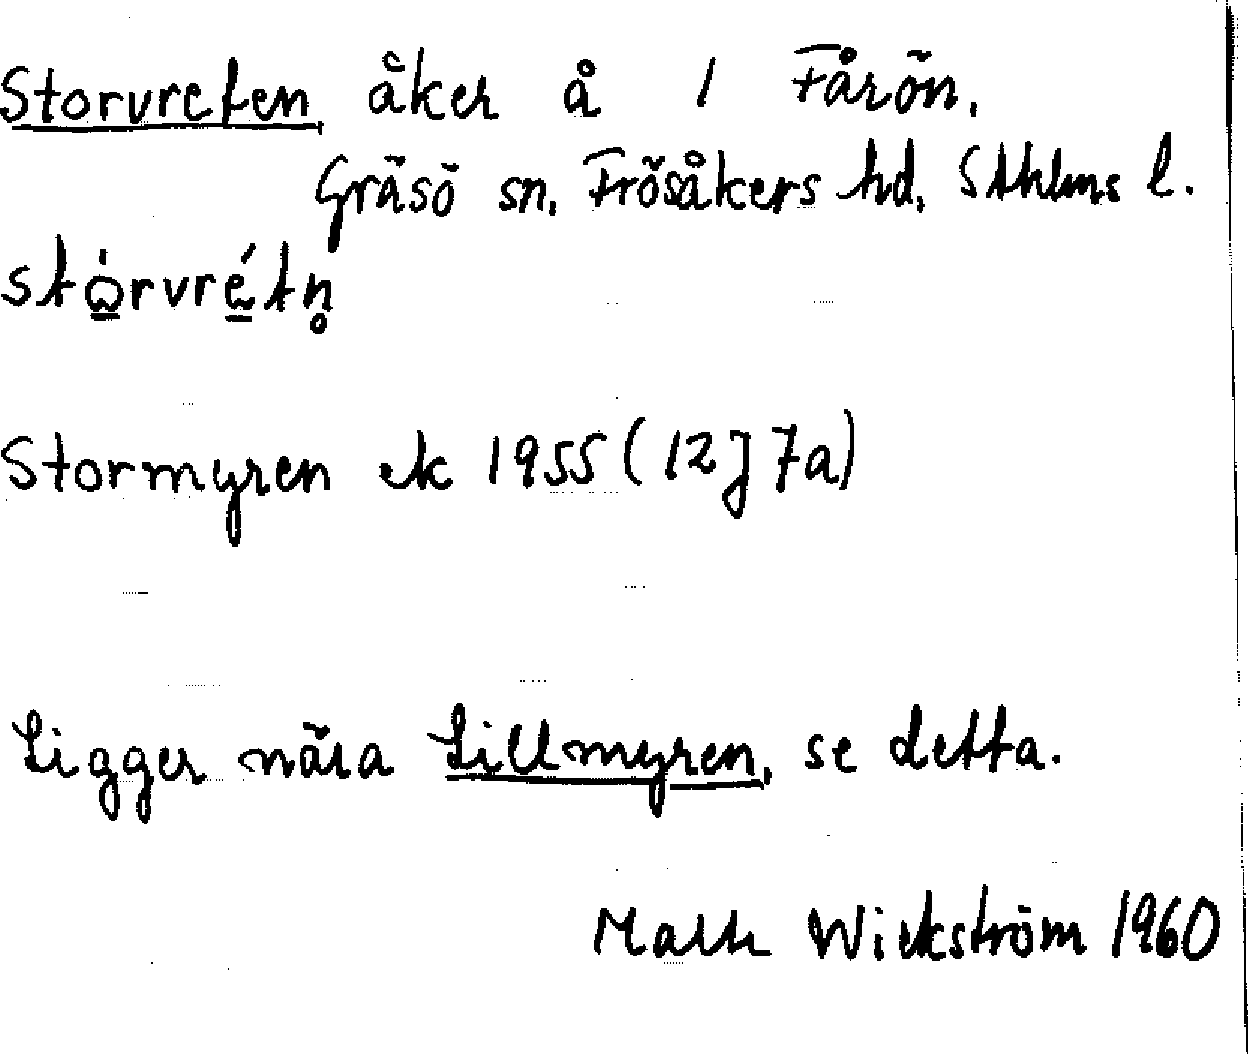 Storvreten, åker å 1 Fårön,
Gräsö sn, Frösåkers hd, Sthlms l.
stó̱rvré̱tn̥
Stormyren ek 1955 (12J 7a)
Ligger nära Lillmyren, se detta.
Wickström 1960